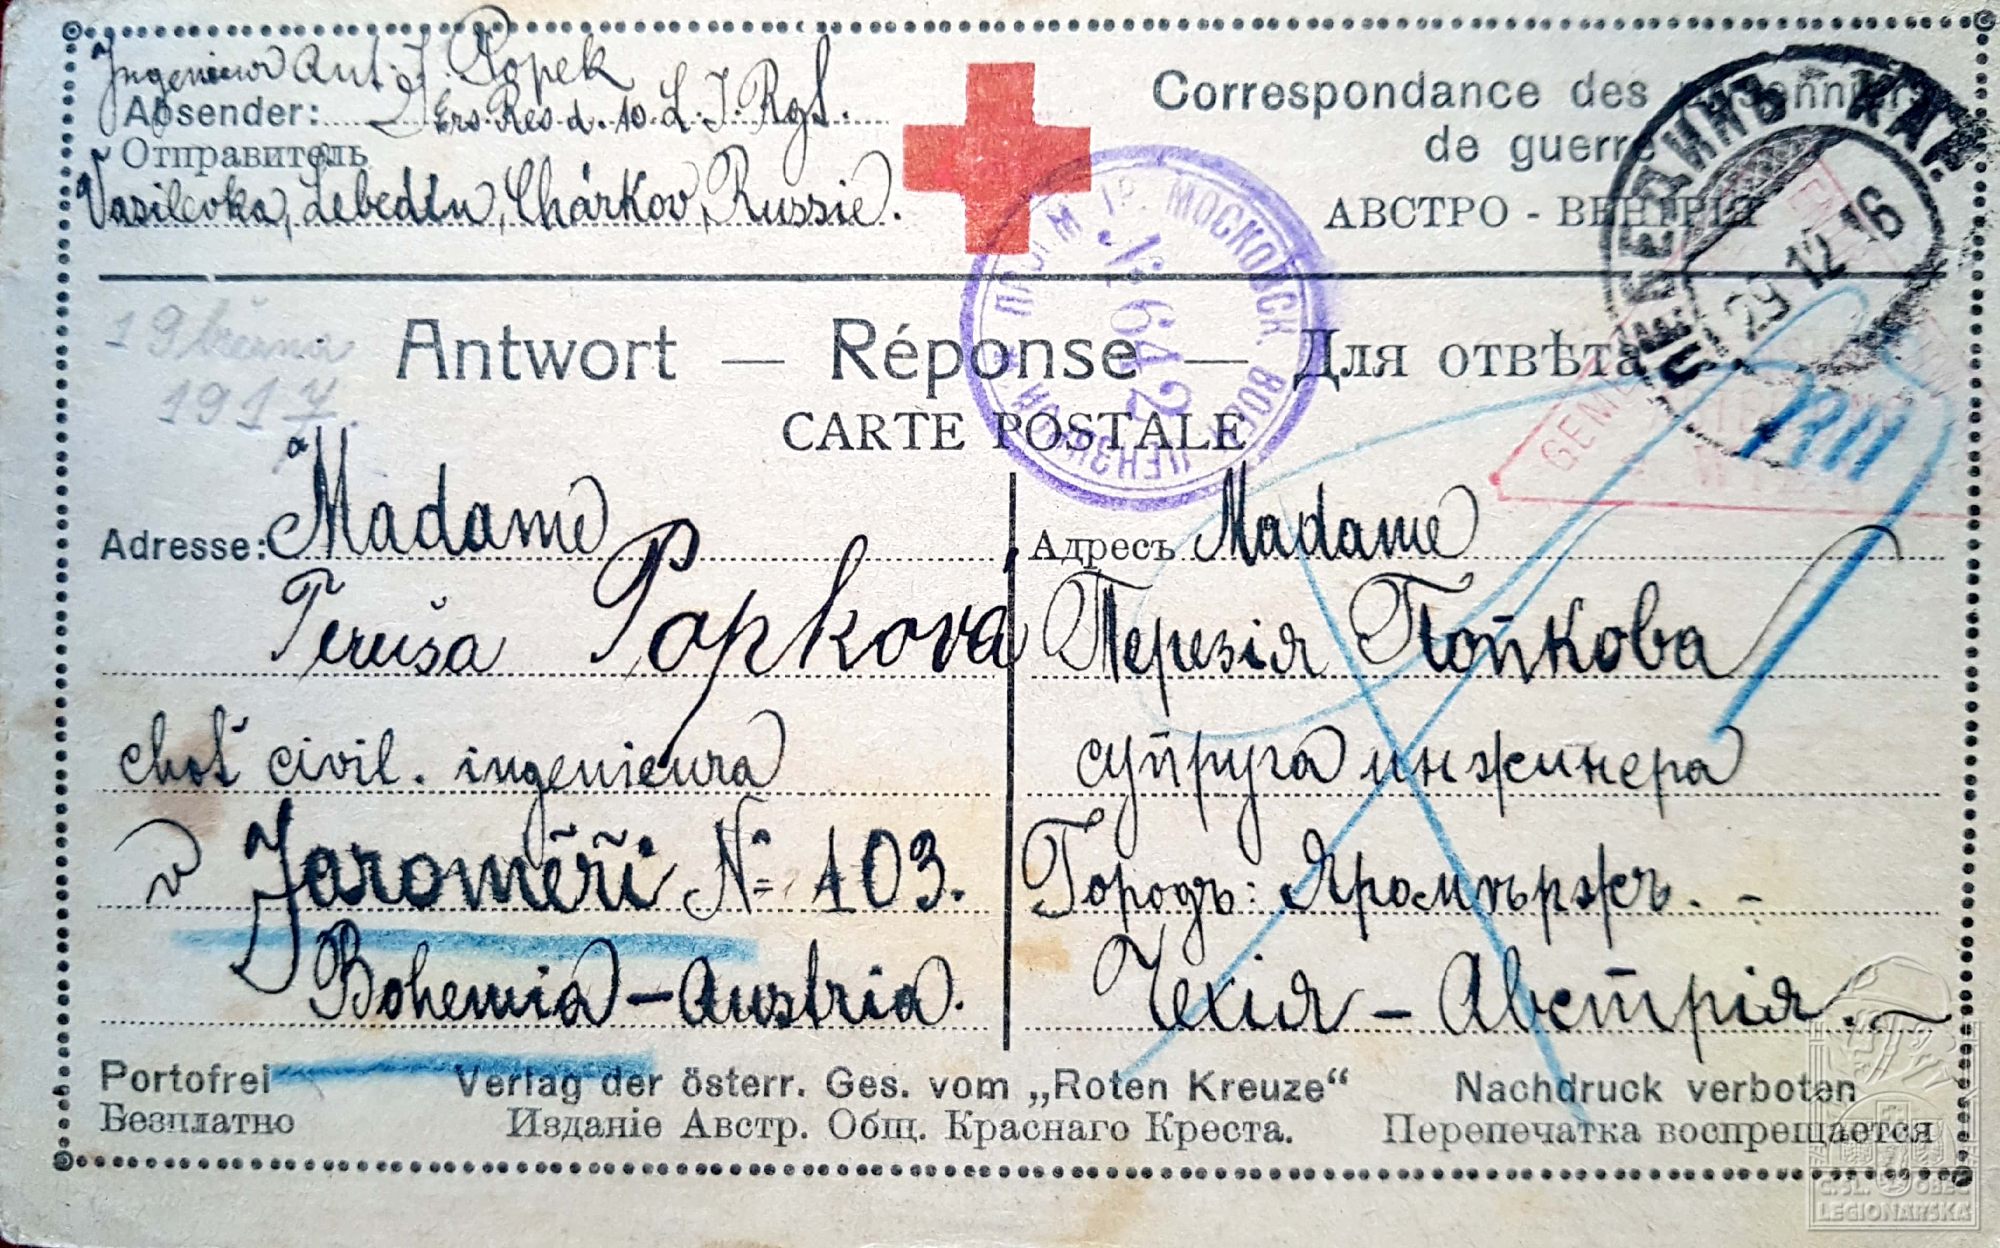 Ingenieur Ant. J. Popek
Absender: Ers. Res. d. 10. L. I. Rgt.
Отправитель
Vasilevka, Lebedin, Chárkov, Russie.
Correspondance des prisonniers
de guerre
АВСТРО - ВЕНГРІЯ
ЛЕБЕДИНЪ ХАР.
29 12 16
МОСКОВСК. ВОЕН
ЦЕНЗУРОЙ
№ 642
19 března
1917.
Antwort — Réponse — Для отвѣта
CARTE POSTALE
à
Adresse: Madame
Teruša Popková
choť civil. ingenieura
v Jaroměři № 103.
Bohemia – Austria.
Адресъ Madame
Терезія Попкова
супруга инжинера
Городъ: Яромѣржъ. -
Чехія – Австрія.
Portofrei
Безплатно
Verlag der österr. Ges. vom „Roten Kreuze“
Изданіе Австр. Общ. Краснаго Креста.
Nachdruck verboten
Перепечатка воспрещается
Č. SL. OBEC
LEGIONÁŘSKÁ